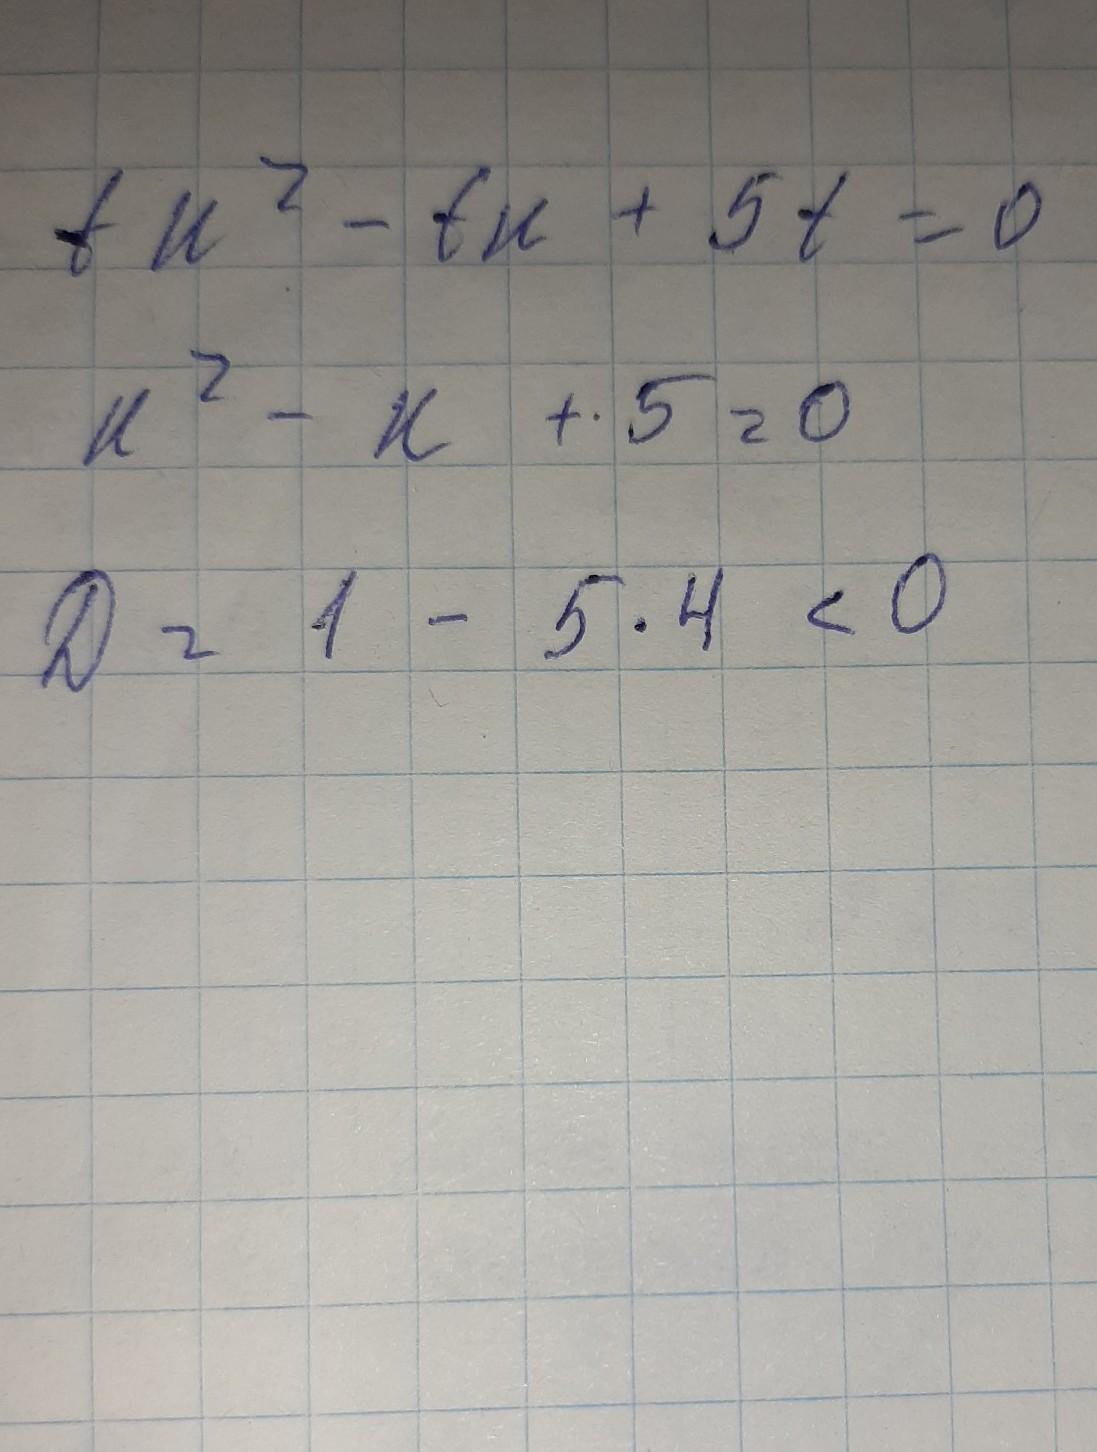 tx² - tx + 5t = 0
x² - x + 5 = 0
D = 1 - 5·4 < 0